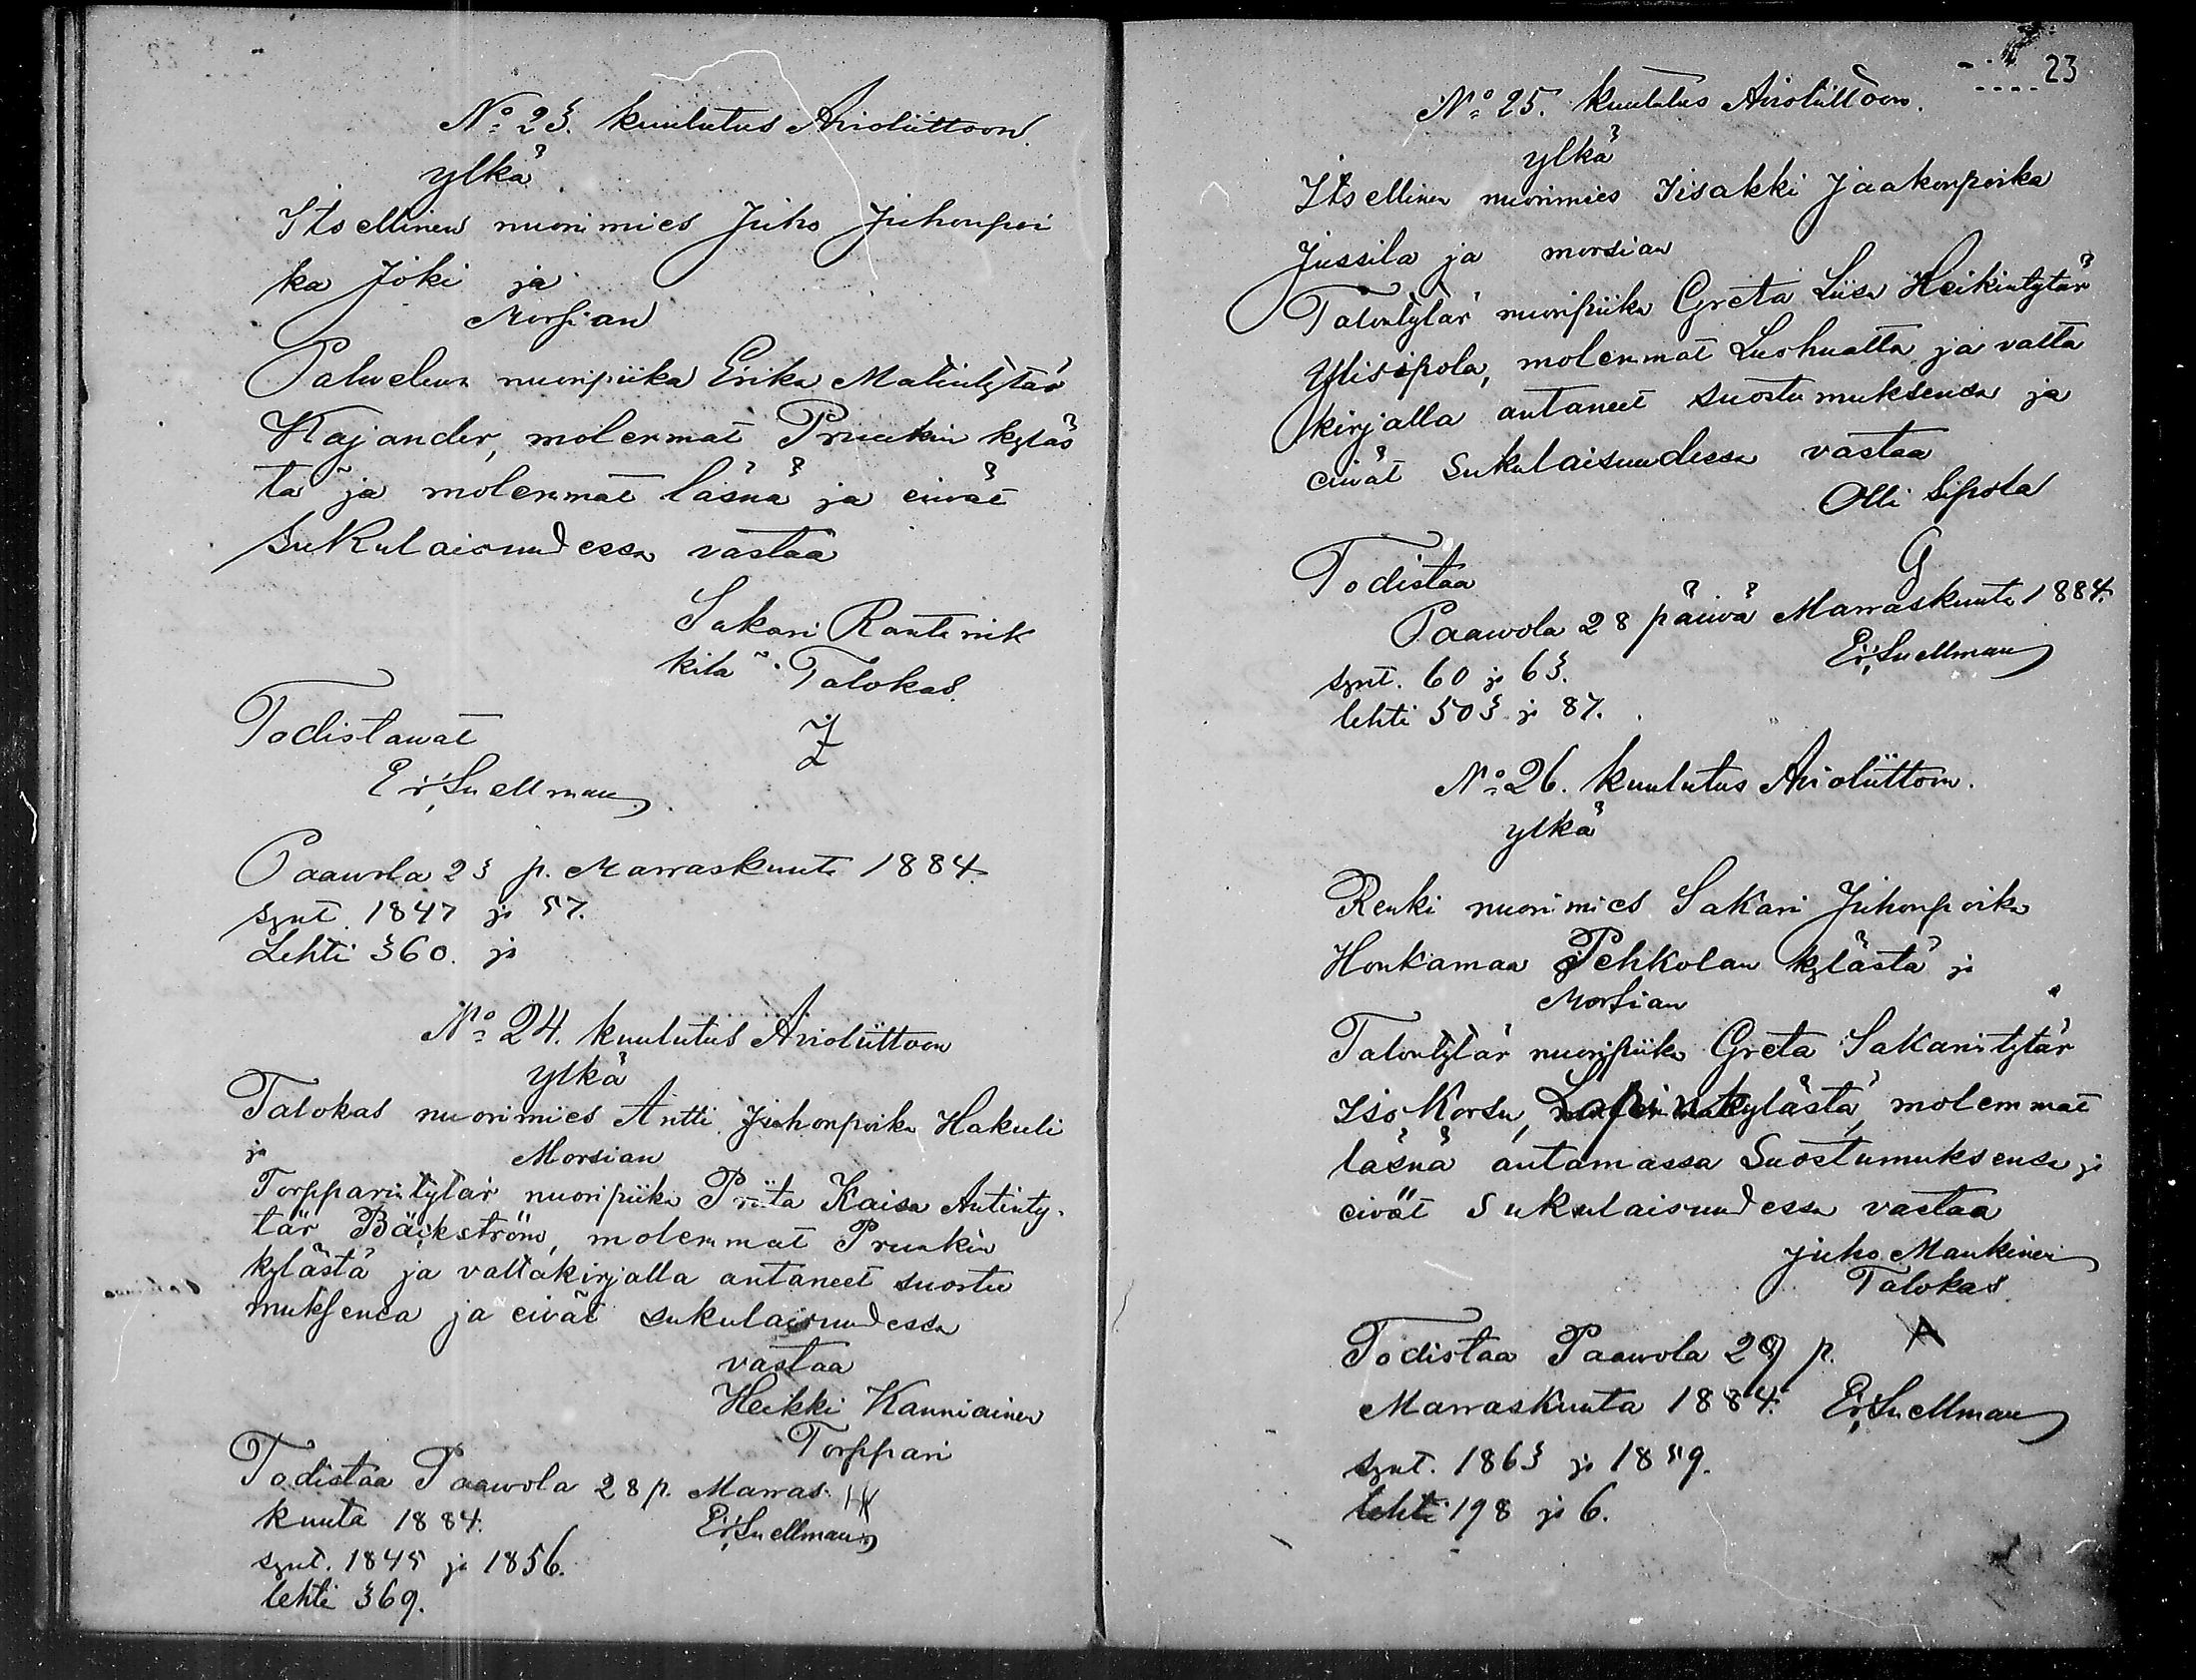 No 23. kuulutus Avioliittoon
ylkä
Itsellinen nuorimies Juho Juhonpoi
ka Joki ja
Morsian
Palvelian nuoripiika Erika Matintytär
Kajander, molemmat Pruukin kyläs
tä ja molemmat läsnä ja eivät
sukulaisuudessa vastaa
Sakari Rantanik
kilä Talokas.
Todistawat
Er. Snellman
Paawola 23 p. Marraskuuta 1884.
synt. 1847 ja 57.
Lehti 360. ja
No 24. kuulutus Avioliittoon
ylkä
Talokas nuorimies Antti Juhonpoika Hakuli
ja Morsian
Torpparintytär nuoripiika Priita Kaisa Antinty-
tär Bäckström, molemmat Pruukin
kylästä ja valtakirjalla antaneet suostu
muksensa ja eivät sukulaisuudessa
vastaa
Heikki Kanniainen
Torppari
Todistaa Paawola 28 p. Marras
kuuta 1884. Er. Snellman
synt. 1845 ja 1856.
lehti 369.
23
No 25. kuulutus Avioliittoon.
ylkä
Itsellinen nuorimies Iisakki Jaakonpoika
Jussila ja morsian
Talontytär nuoripiika Greta Liisa Heikintytär
Ylisipola, molemmat Luohualta ja valta
kirjalla antaneet suostumuksensa ja
eivät sukulaisuudessa vastaa
Olli Sipola
Todistaa
Paawola 28 päivä Marraskuuta 1884.
Er. Snellman
synt. 60 ja 63.
lehti 503 ja 87.
No 26. kuulutus Avioliittoon.
ylkä
Renki nuorimies Sakari Juhonpoika
Honkamaa Pehkolan kylästä ja
Morsian
Talontytär nuoripiika Greta Sakaritytär
Iso Korsu, Lapinkylästä, molemmat
läsnä antamassa Suostumuksensa ja
eivät sukulaisuudessa vastaa
Juho Mankinen
Talokas
Todistaa Paawola 29 p.
Marraskuuta 1884. Er. Snellman
synt. 1863 ja 1859.
lehti 198 ja 6.